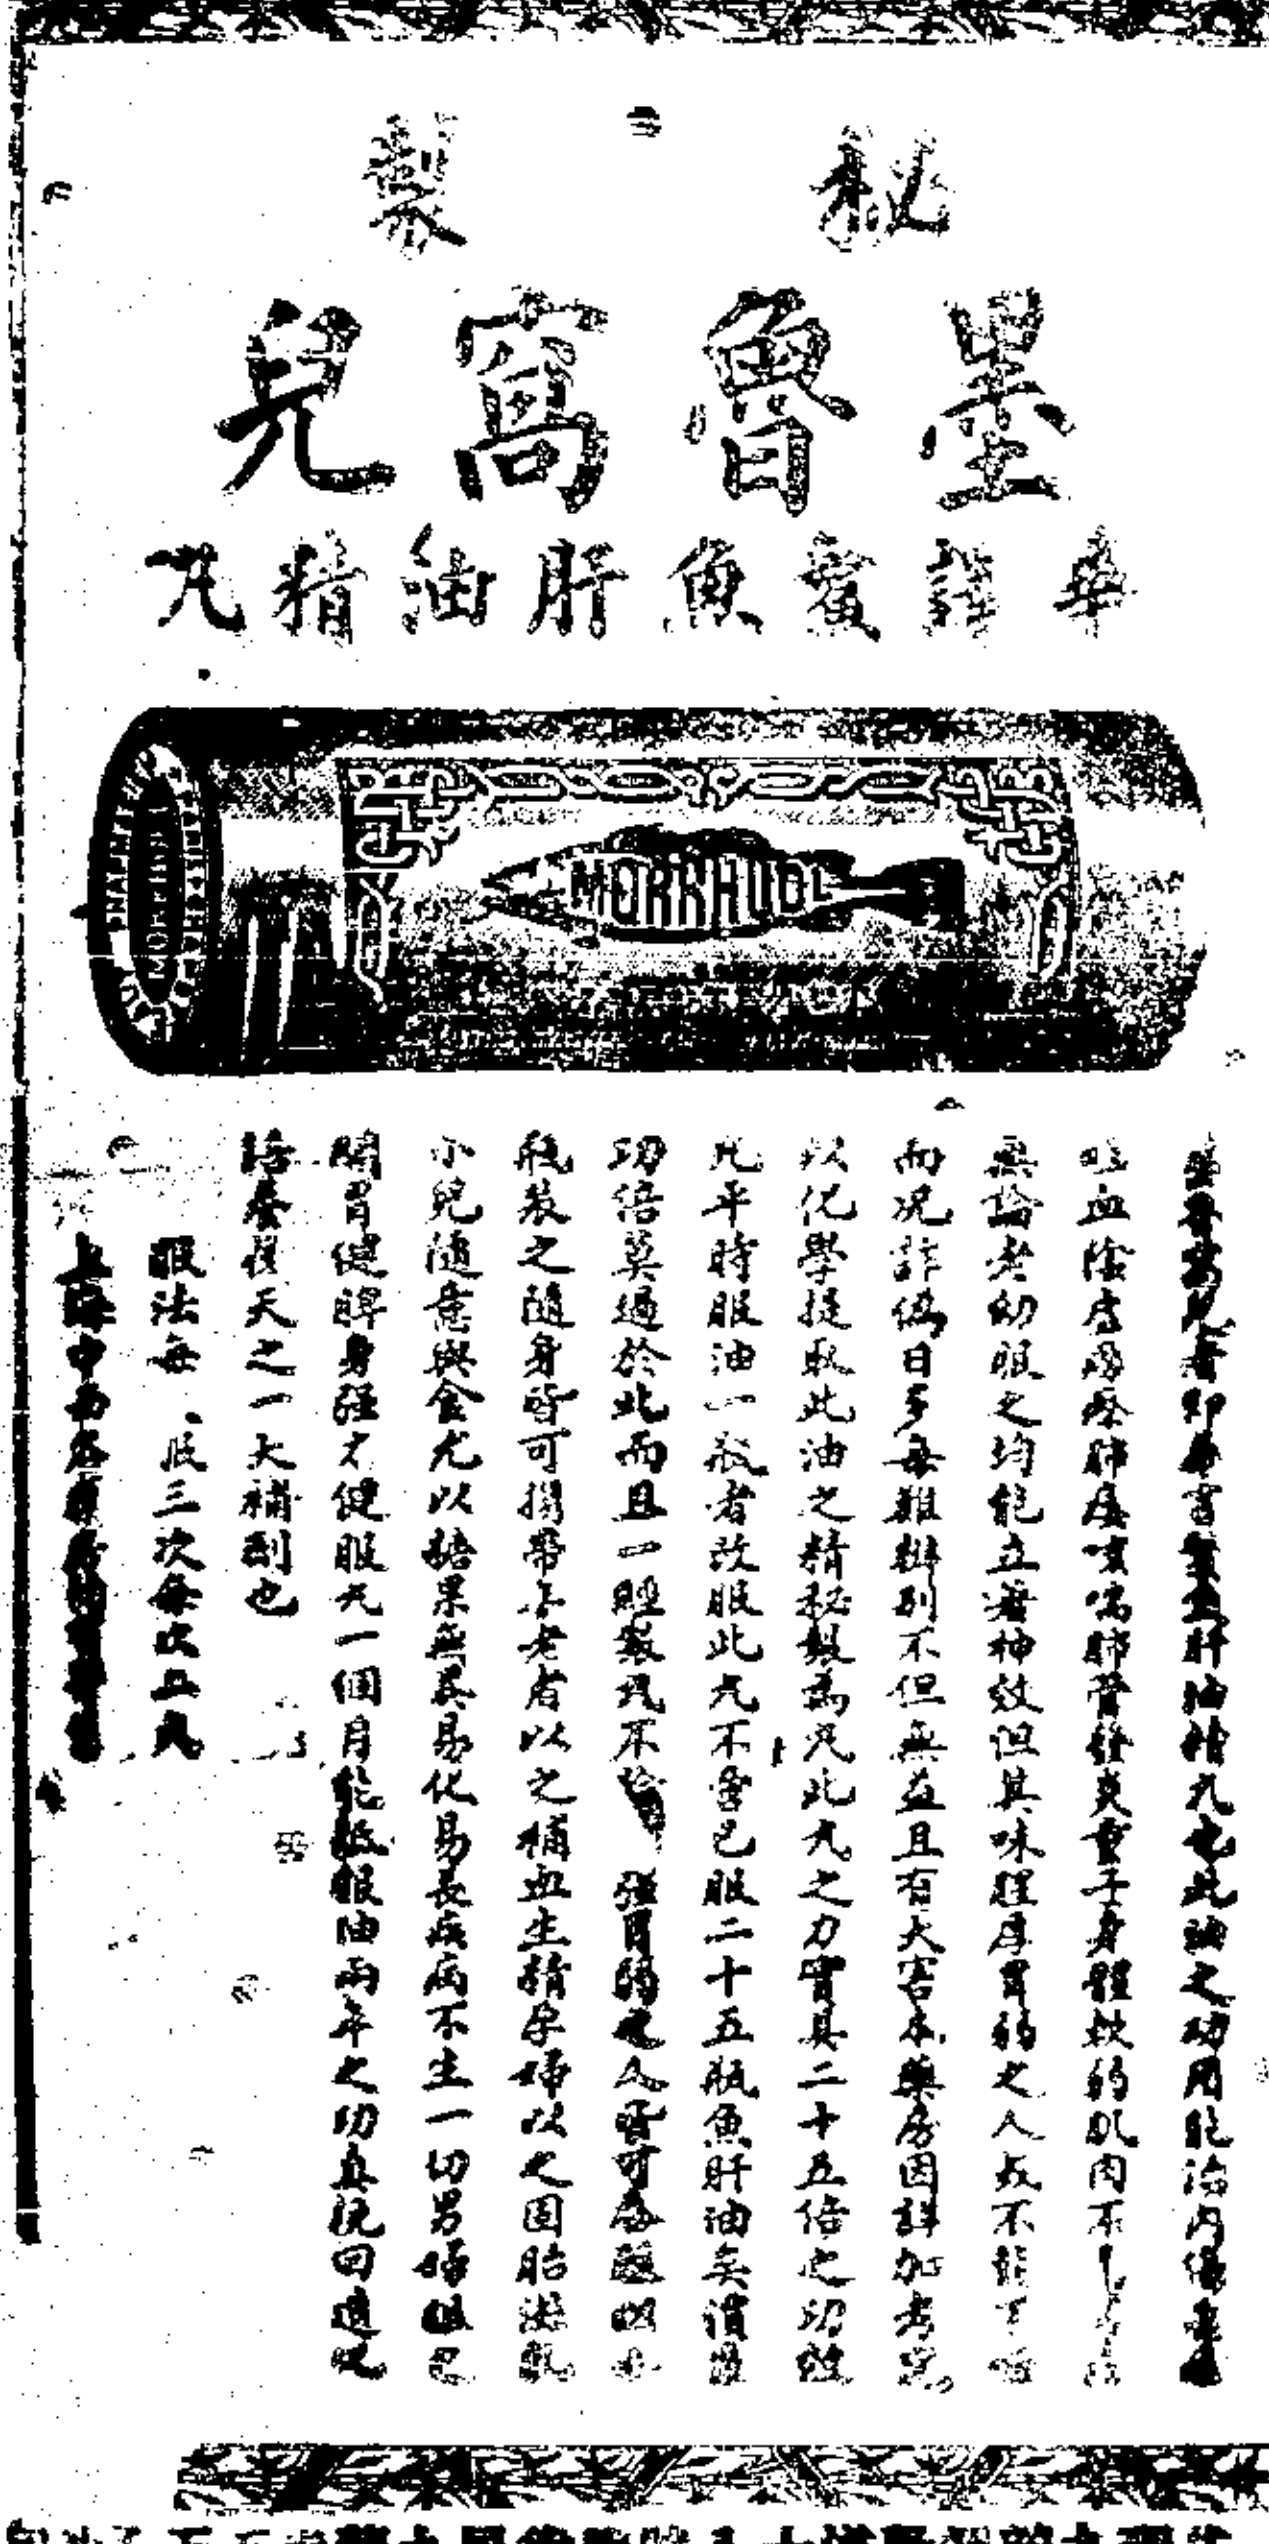 秘製
墨魯窩兒
華譯鱉魚肝油精丸
MORRHUOL
MORRHUOL
墨魯窩兒者即華言鱉魚肝油精丸也此油之功用能治內傷
吐血陰虛癆瘵肺痿咳嗽肺管發炎童子身體軟弱肌肉不
無論老幼服之均能立著神效但其味腥厚胃弱之人每不能下咽
而况詐偽日多每難辨別不但無益且有大害本藥房因詳加考究
以化學提取此油之精秘製為丸此丸之力實具二十五倍之功效
凡平時服油一瓶者改服此丸不啻已服二十五瓶魚肝油矣
功倍莫過於此而且一經製丸不論 強胃弱之人皆可
瓶裝之隨身皆可攜帶年老者以之補血生精孕婦以之固胎
小兒隨意與食尤以糖果無異易化易長疾病不生一切男婦
開胃健脾身強才健服丸一個月能抵服油兩年之功真挽回造化
培養後天之一大補劑也
服法每 服三次每次五丸
上海中西各